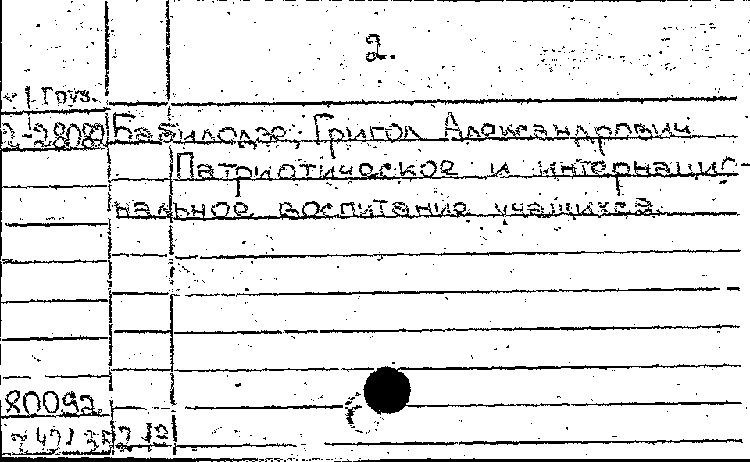 2.
Груз.
2-2808 Бабилодзе, Григол Александрович
Патриотическое и интернацио-
нальное воспитание учащихся.
80092